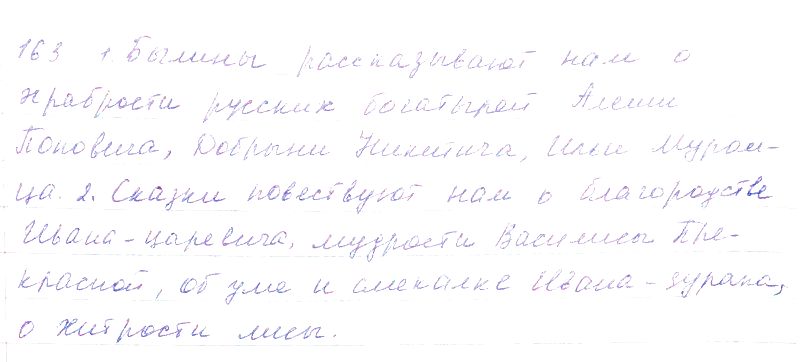 163 1. Былины рассказывают нам о
храбрости русских богатырей Алеши
Поповича, Добрыни Никитича, Ильи Муром-
ца. 2. Сказки повествуют нам о благородстве
Ивана-царевича, мудрости Василисы Пре-
красной, об уме и смекалке Ивана-дурака,
о хитрости лисы.